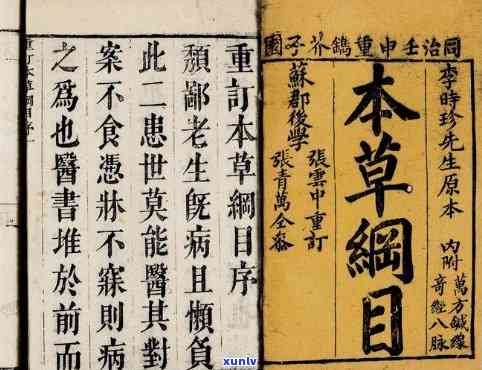 同治壬申重鐫芥子園
李時珍先生原本
內附
萬方鍼線
奇經八脉
本草綱目
蘇郡後學
張雲中重訂
張青萬仝參
重訂本草綱目序
頽鄙老生旣病且懶負
此二患世莫能醫其對
案不食憑牀不寐則病
之爲也醫書堆於前而
重訂本草綱目序
xunlv